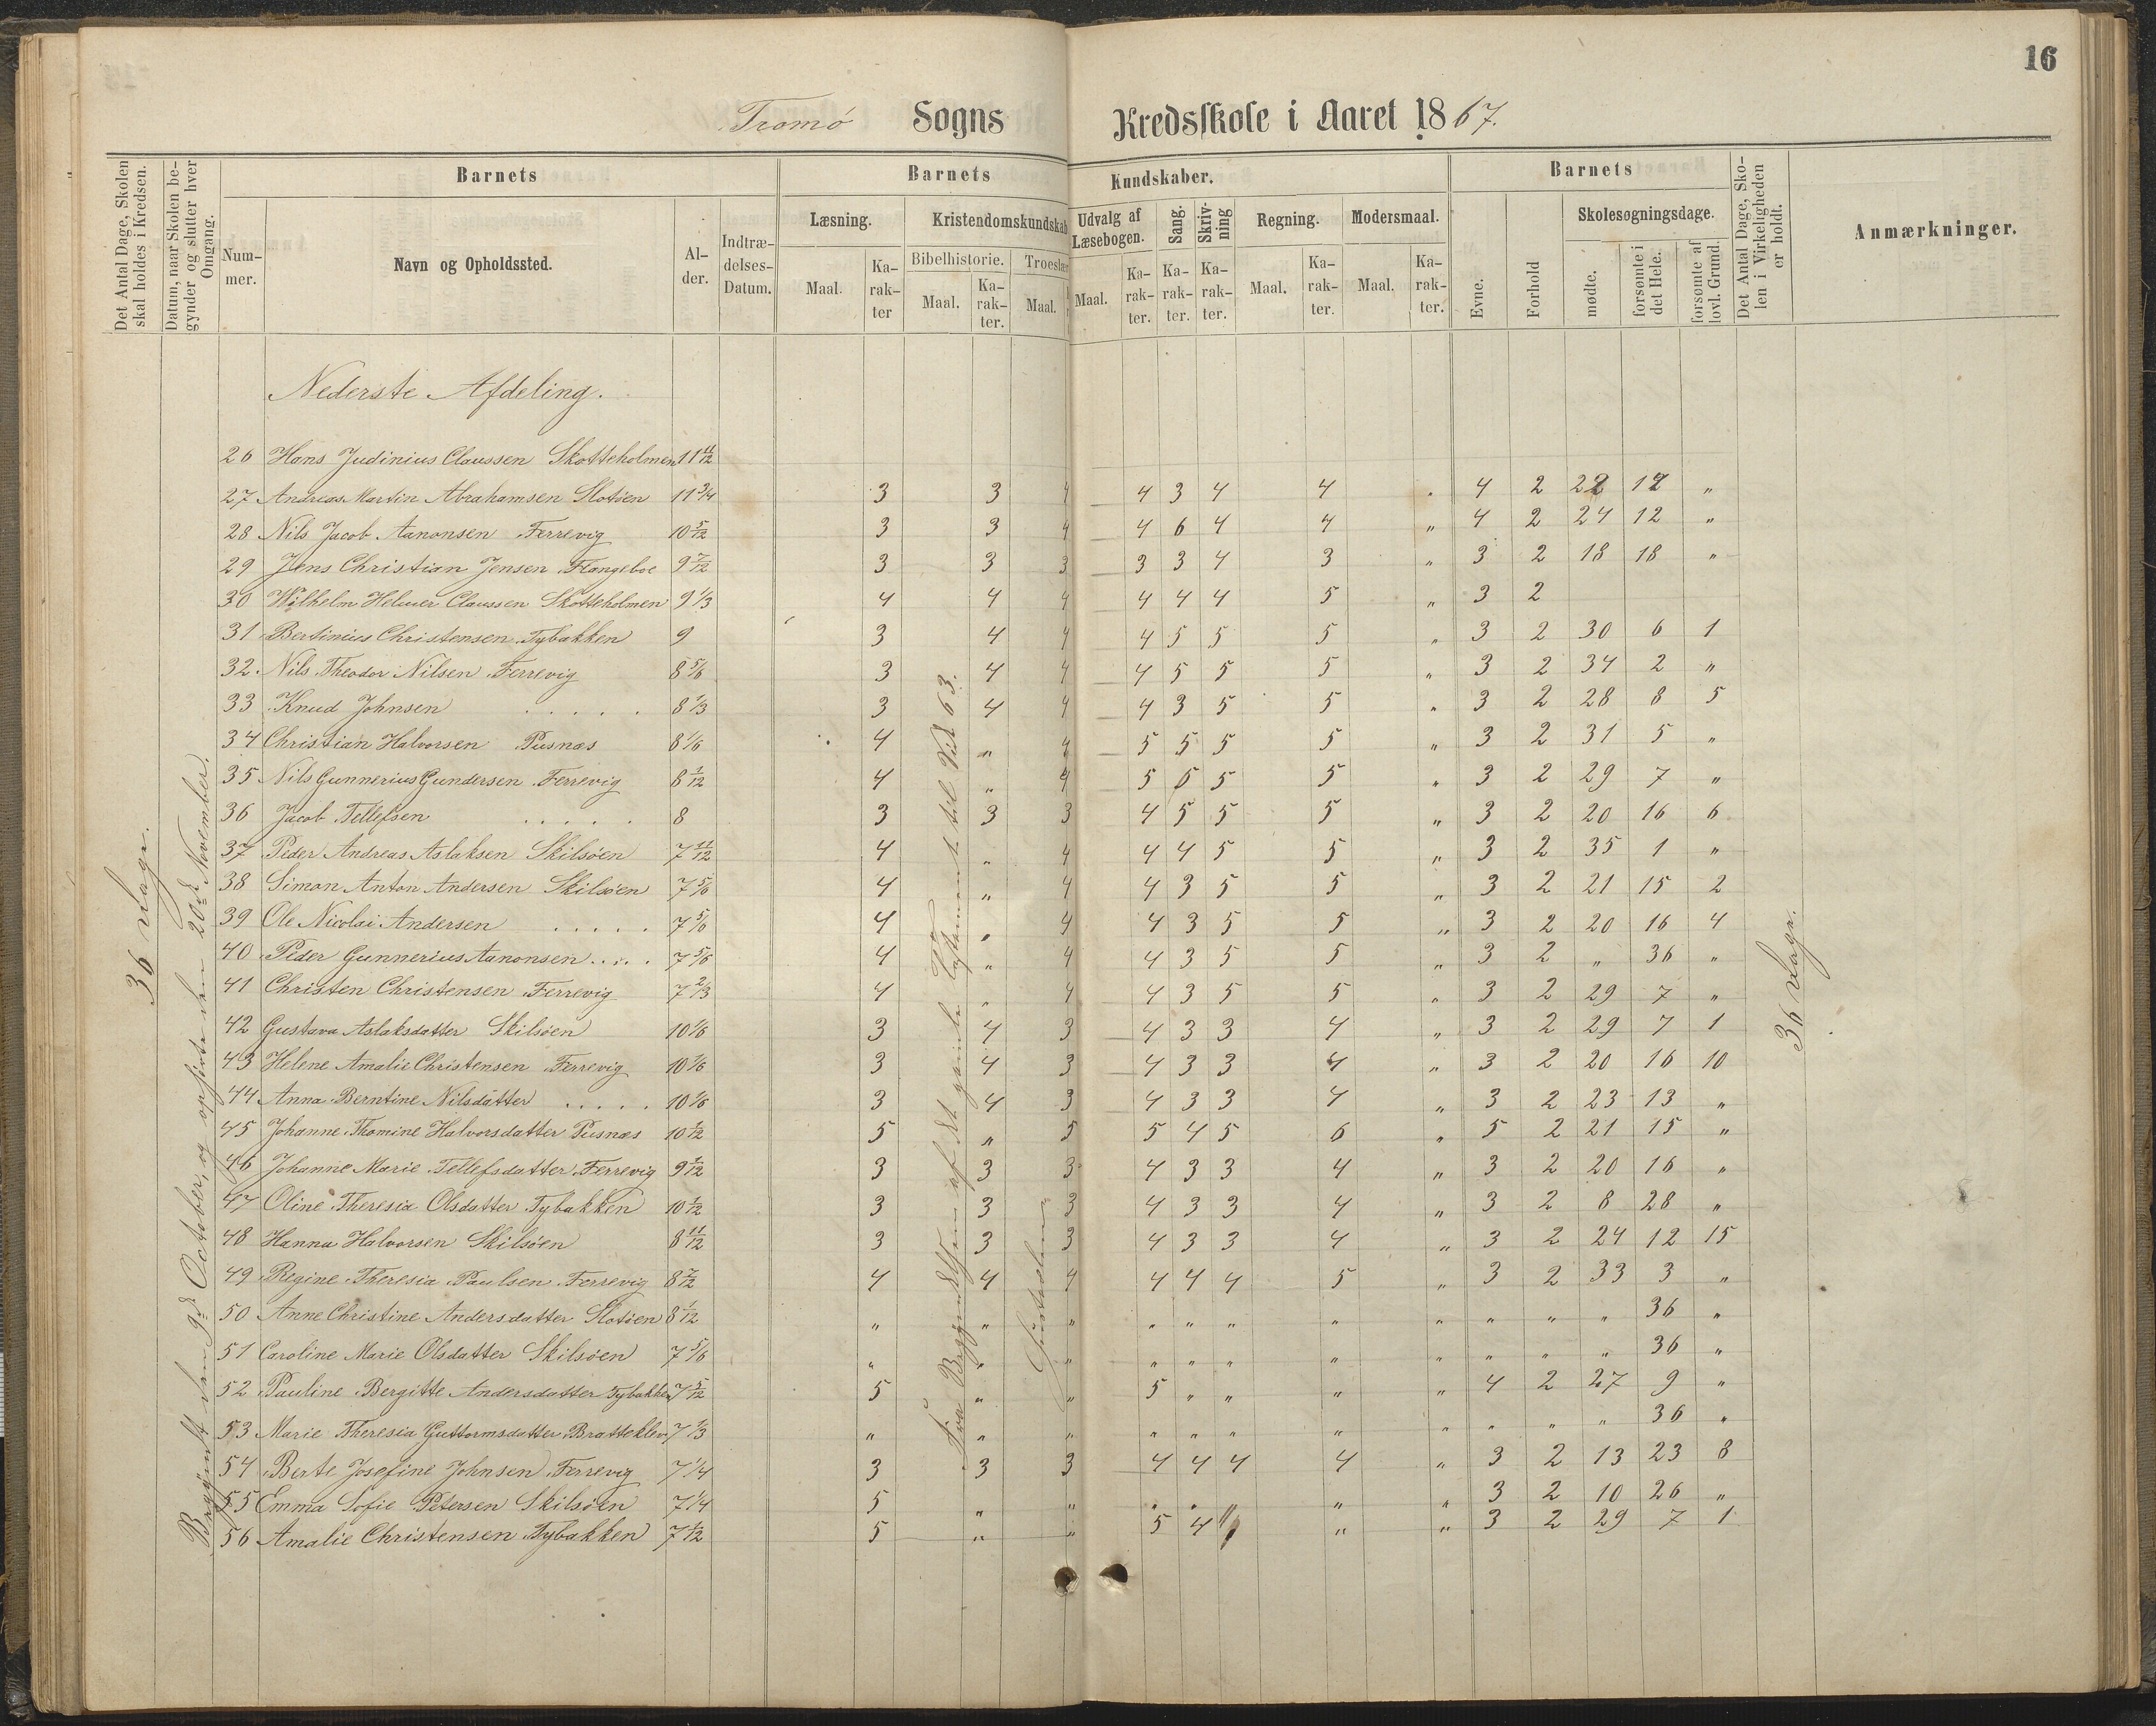 16
Tromö Sogns Kredsskole i Aaret 1867.
Det Antal Dage, Skolen skal holdes i Kredsen.
Datum, naar Skolen begynder og slutter hver Omgang.
Barnets
Barnets Kundskaber.
Barnets
Det Antal Dage, Skolen i Virkeligheden er holdt.
Anmærkninger.
Nummer.
Navn og Opholdssted.
Alder.
Indtrædelses-Datum.
Læsning.
Kristendomskundskab
Udvalg af Læsebogen.
Sang.
Skrivning
Regning.
Modersmaal.
Evne.
Forhold
Skolesøgningsdage.
Bibelhistorie.
Troeslær
Maal. Karakter
Maal. Karakter.
Maal.
Maal. Karakter. Karakter. Karakter.
Maal. Karakter.
Maal. Karakter.
mødte.
forsømte i det Hele.
forsømte af lovl. Grund.
36 Dage.
Begyndt den 9de October, og ophørte den 20de November.
Fra Begyndelsen af det gamle Testament til Vid 63.
36 Dage.
Nederste Afdeling.
26 Hans Judinius Claussen Skotteholmen 11 11/12
27 Andreas Martin Abrahamsen Slotöen 11 3/4 3 3 4 4 3 4 4 . 4 2 22 12 "
28 Nils Jacob Aanonsen Færrevig 10 5/12 3 3 4 4 6 4 4 " 4 2 24 12 "
29 Jens Christian Jensen Flangeboe 9 7/12 3 3 3 3 3 4 3 " 3 2 18 18 "
30 Wilhelm Helmer Claussen Skotteholmen 9 1/3 4 4 4 4 4 4 5 " 3 2
31 Bertinius Christensen Tybakken 9 3 4 4 4 5 5 5 " 3 2 30 6 1
32. Nils Theodor Nilsen Færrevig 8 5/6 3 4 4 4 5 5 5 " 3 2 34 2 "
33 Knud Johnsen . . . . . 8 1/3 3 4 4 4 3 5 5 " 3 2 28 8 5
34 Christian Halvorsen Pusnæs 8 1/6 4 " 4 5 5 5 5 " 3 2 31 5 "
35 Nils Gunnerius Gundersen Færrevig 8 1/12 4 " 4 5 6 5 5 " 3 2 29 7 "
36 Jacob Tellefsen . . . . . 8 3 3 3 4 5 5 5 " 3 2 20 16 6
37 Peder Andreas Aslaksen Skilsöen 7 11/12 4 " 4 4 4 5 5 " 3 2 35 1 "
38 Simon Anton Andersen Skilsöen 7 5/6 4 " 4 4 3 5 5 " 3 2 21 15 2
39 Ole Nicolai Andersen . . . . . 7 5/6 4 " 4 4 3 5 5 " 3 2 20 16 4
40 Peder Gunnerius Aanonsen . . . . 7 5/6 4 " 4 4 3 5 5 " 3 2 " 36 "
41 Christen Christensen Færrevig 7 2/3 4 " 4 4 3 5 5 " 3 2 29 7 "
42 Gustava Aslaksdatter Skilsöen 10 1/6 3 4 3 4 3 3 4 " 3 2 29 7 1
43 Helene Amalie Christensen Færrevig 10 1/6 3 4 3 4 3 3 4 " 3 2 20 16 10
44 Anna Berntine Nilsdatter . . . . . 10 1/6 3 4 3 4 3 3 4 " 3 2 23 13 "
45 Johanne Thomine Halvorsdatter Pusnæs 10 1/12 5 " 5 5 4 5 6 " 5 2 21 15 "
46 Johanne Marie Tellefsdatter Færrevig 9 1/12 3 3 3 4 3 3 4 " 3 2 20 16 "
47 Oline Theresia Olsdatter Tybakken 10 1/12 3 3 3 4 3 3 4 " 3 2 8 28 "
48 Hanna Halvorsen Skilsöen 8 11/12 3 3 3 4 3 3 4 " 3 2 24 12 15
49 Regine Theresia Paulsen Færrevig 8 7/12 4 4 4 4 4 4 5 " 3 2 33 3 "
50 Anne Christine Andersdatter Slotöen 8 1/12 " " " " " " " " " " " 36 "
51 Caroline Marie Olsdatter Skilsöen 7 5/6 " " " " " " " " " " " 36 "
52 Pauline Bergitte Andersdatter Tybakken 7 5/12 5 " " 5 " " " " 4 2 27 9 "
53 Marie Theresia Guttormsdatter Bratteklev 7 1/3 " " " " " " " " " " " 36 "
54 Berte Josefine Johnsen Færrevig 7 1/4 3 3 3 4 4 4 4 " 3 2 13 23 8
55 Emma Sofie Petersen Skilsöen 7 1/4 5 " " " " " " " 3 2 10 26 "
56 Amalie Christensen Tybakken 7 1/12 5 " " 5 4 " " " 3 2 29 7 1